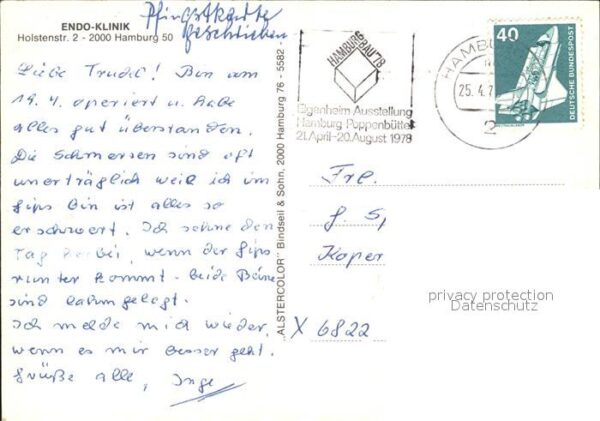 ENDO-KLINIK
Holstenstr. 2 - 2000 Hamburg 50
Pfingstkarte
geschrieben
Liebe Trudel! Bin am
19.4. operiert u. habe
alles gut überstanden.
Die Schmerzen sind oft
unerträglich weil ich im
Gips bin ist alles so
erschwert. Ich sehne den
Tag herbei, wenn der Gips
runter kommt - beide Beine
sind lahmgelegt.
Ich melde mich wieder,
wenn es mir besser geht.
Grüße alle, Inge
"ALSTERCOLOR" Bindseil & Sohn, 2000 Hamburg 76 - 5582 -
HAMBURG BAU'78
Eigenheim-Ausstellung
Hamburg-Poppenbüttel
21.April-20.August 1978
HAMBU
25.4.7
2
40
DEUTSCHE BUNDESPOST
Frl.
X 6822
privacy protection
Datenschutz